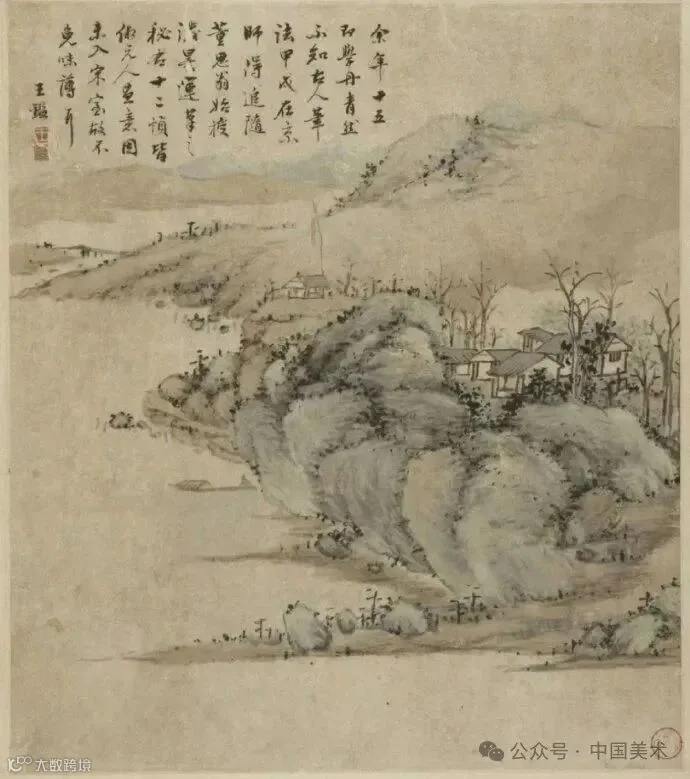 余年十五
即學丹青然
不知古人筆
法甲戌在京
師得追隨
董思翁始授
淺異運筆之
秘右十二幀皆
倣元人畫意因
未入宋室故不
免味薄耳
王鑑
公众号·中国美术
大数跨境